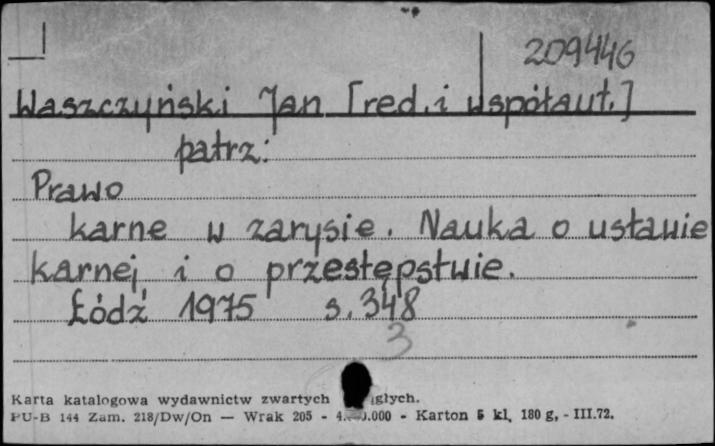 209446
Waszczyński Jan [red. i współaut.]
patrz:
Prawo
karne w zarysie. Nauka o ustawie
karnej i o przestępstwie.
Łódź 1975 s. 348
3
Karta katalogowa wydawnictw zwartych głych.
PU-B 144 Zam. 218/Dw/On — Wrak 205 - .000 - Karton 5 kl. 180 g, - III.72.